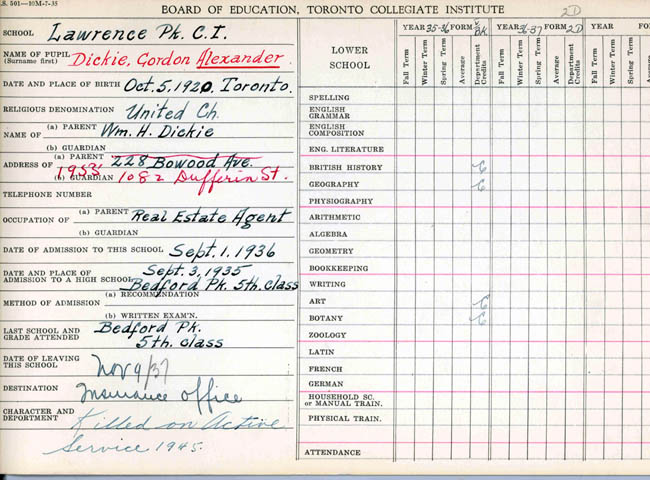 S. 501—10M-7-35
BOARD OF EDUCATION, TORONTO COLLEGIATE INSTITUTE
SCHOOL Lawrence Pk. C.I.
NAME OF PUPIL Dickie, Gordon Alexander
(Surname first)
DATE AND PLACE OF BIRTH Oct. 5, 1920, Toronto.
RELIGIOUS DENOMINATION United Ch.
NAME OF (a) PARENT Wm. H. Dickie
(b) GUARDIAN
ADDRESS OF (a) PARENT 228 Bowood Ave.
(b) GUARDIAN 1082 Dufferin St.
TELEPHONE NUMBER
OCCUPATION OF (a) PARENT Real Estate Agent
(b) GUARDIAN
DATE OF ADMISSION TO THIS SCHOOL Sept. 1, 1936
DATE AND PLACE OF Sept. 3, 1935
ADMISSION TO A HIGH SCHOOL Bedford Pk. 5th. class
METHOD OF ADMISSION (a) RECOMMENDATION
(b) WRITTEN EXAM'N.
LAST SCHOOL AND Bedford Pk.
GRADE ATTENDED 5th. class
DATE OF LEAVING Nov 9/37
THIS SCHOOL
DESTINATION Insurance Office
CHARACTER AND Killed on Active
DEPORTMENT
Service 1945.
LOWER
SCHOOL
YEAR 35-36 FORM
YEAR 36-37 FORM 2D
2D
YEAR FOR
Fall Term
Winter Term
Spring Term
Average
Department Credits
Fall Term
Winter Term
Spring Term
Average
Department Credits
Fall Term
Winter Term
Spring Term
SPELLING
ENGLISH
GRAMMAR
ENGLISH
COMPOSITION
ENG. LITERATURE
BRITISH HISTORY C
GEOGRAPHY C
PHYSIOGRAPHY
ARITHMETIC
ALGEBRA
GEOMETRY
BOOKKEEPING
WRITING
ART C
BOTANY C
ZOOLOGY
LATIN
FRENCH
GERMAN
HOUSEHOLD SC.
or MANUAL TRAIN.
PHYSICAL TRAIN.
ATTENDANCE